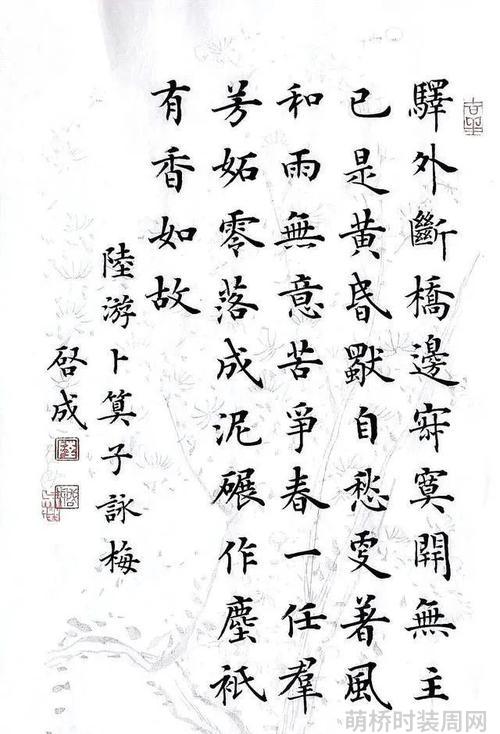 驛外斷橋邊寂寞開無主
已是黃昬獨自愁更著風
和雨無意苦爭春一任羣
芳妬零落成泥碾作塵衹
有香如故
陸游卜算子詠梅
啓成
萌桥时装周网